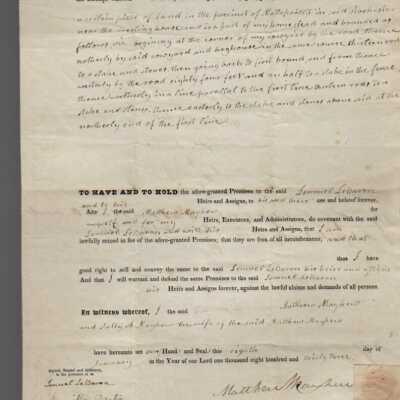 a certain piece of land in the precinct of Mattapoisett in said Rochester
near the meeting house and is a part of my homestead and bounded as
follows viz. beginning at the corner of my by the road thence
northerly by said and in the same course thirteen rods
to a stake and stones, then going back to first bound and from thence
westerly by the road eighty four feet and an half to a stake in the fence
thence northerly in a line parallel to the first line thirteen rods to a
stake and stones, thence easterly to the stake and stones above said at the
northerly end of the first line.
TO HAVE AND TO HOLD the afore-granted Premises to the said Lemuel LeBaron
and to his Heirs and Assigns, to his use and behoof forever,
And I the said Matthew Mayhew for
myself and for my Heirs, Executors, and Administrators, do covenant with the said
Lemuel LeBaron and with his Heirs and Assigns, that I am
lawfully seized in fee of the afore-granted Premises; that they are free of all incumbrances, and that
that I have
good right to sell and convey the same to the said Lemuel LeBaron his heirs and assigns
And that I will warrant and defend the same Premises to the said Lemuel LeBaron
his Heirs and Assigns forever, against the lawful claims and demands of all persons.
In witness whereof, I the said Matthew Mayhew
and Sally Mayhew the wife of the said Matthew Mayhew
have hereunto set our Hand and Seal this eighth day of
January in the Year of our Lord one thousand eight hundred and
Signed, Sealed and delivered,
in the presence of us
Lemuel LeBaron
Matthew Mayhew